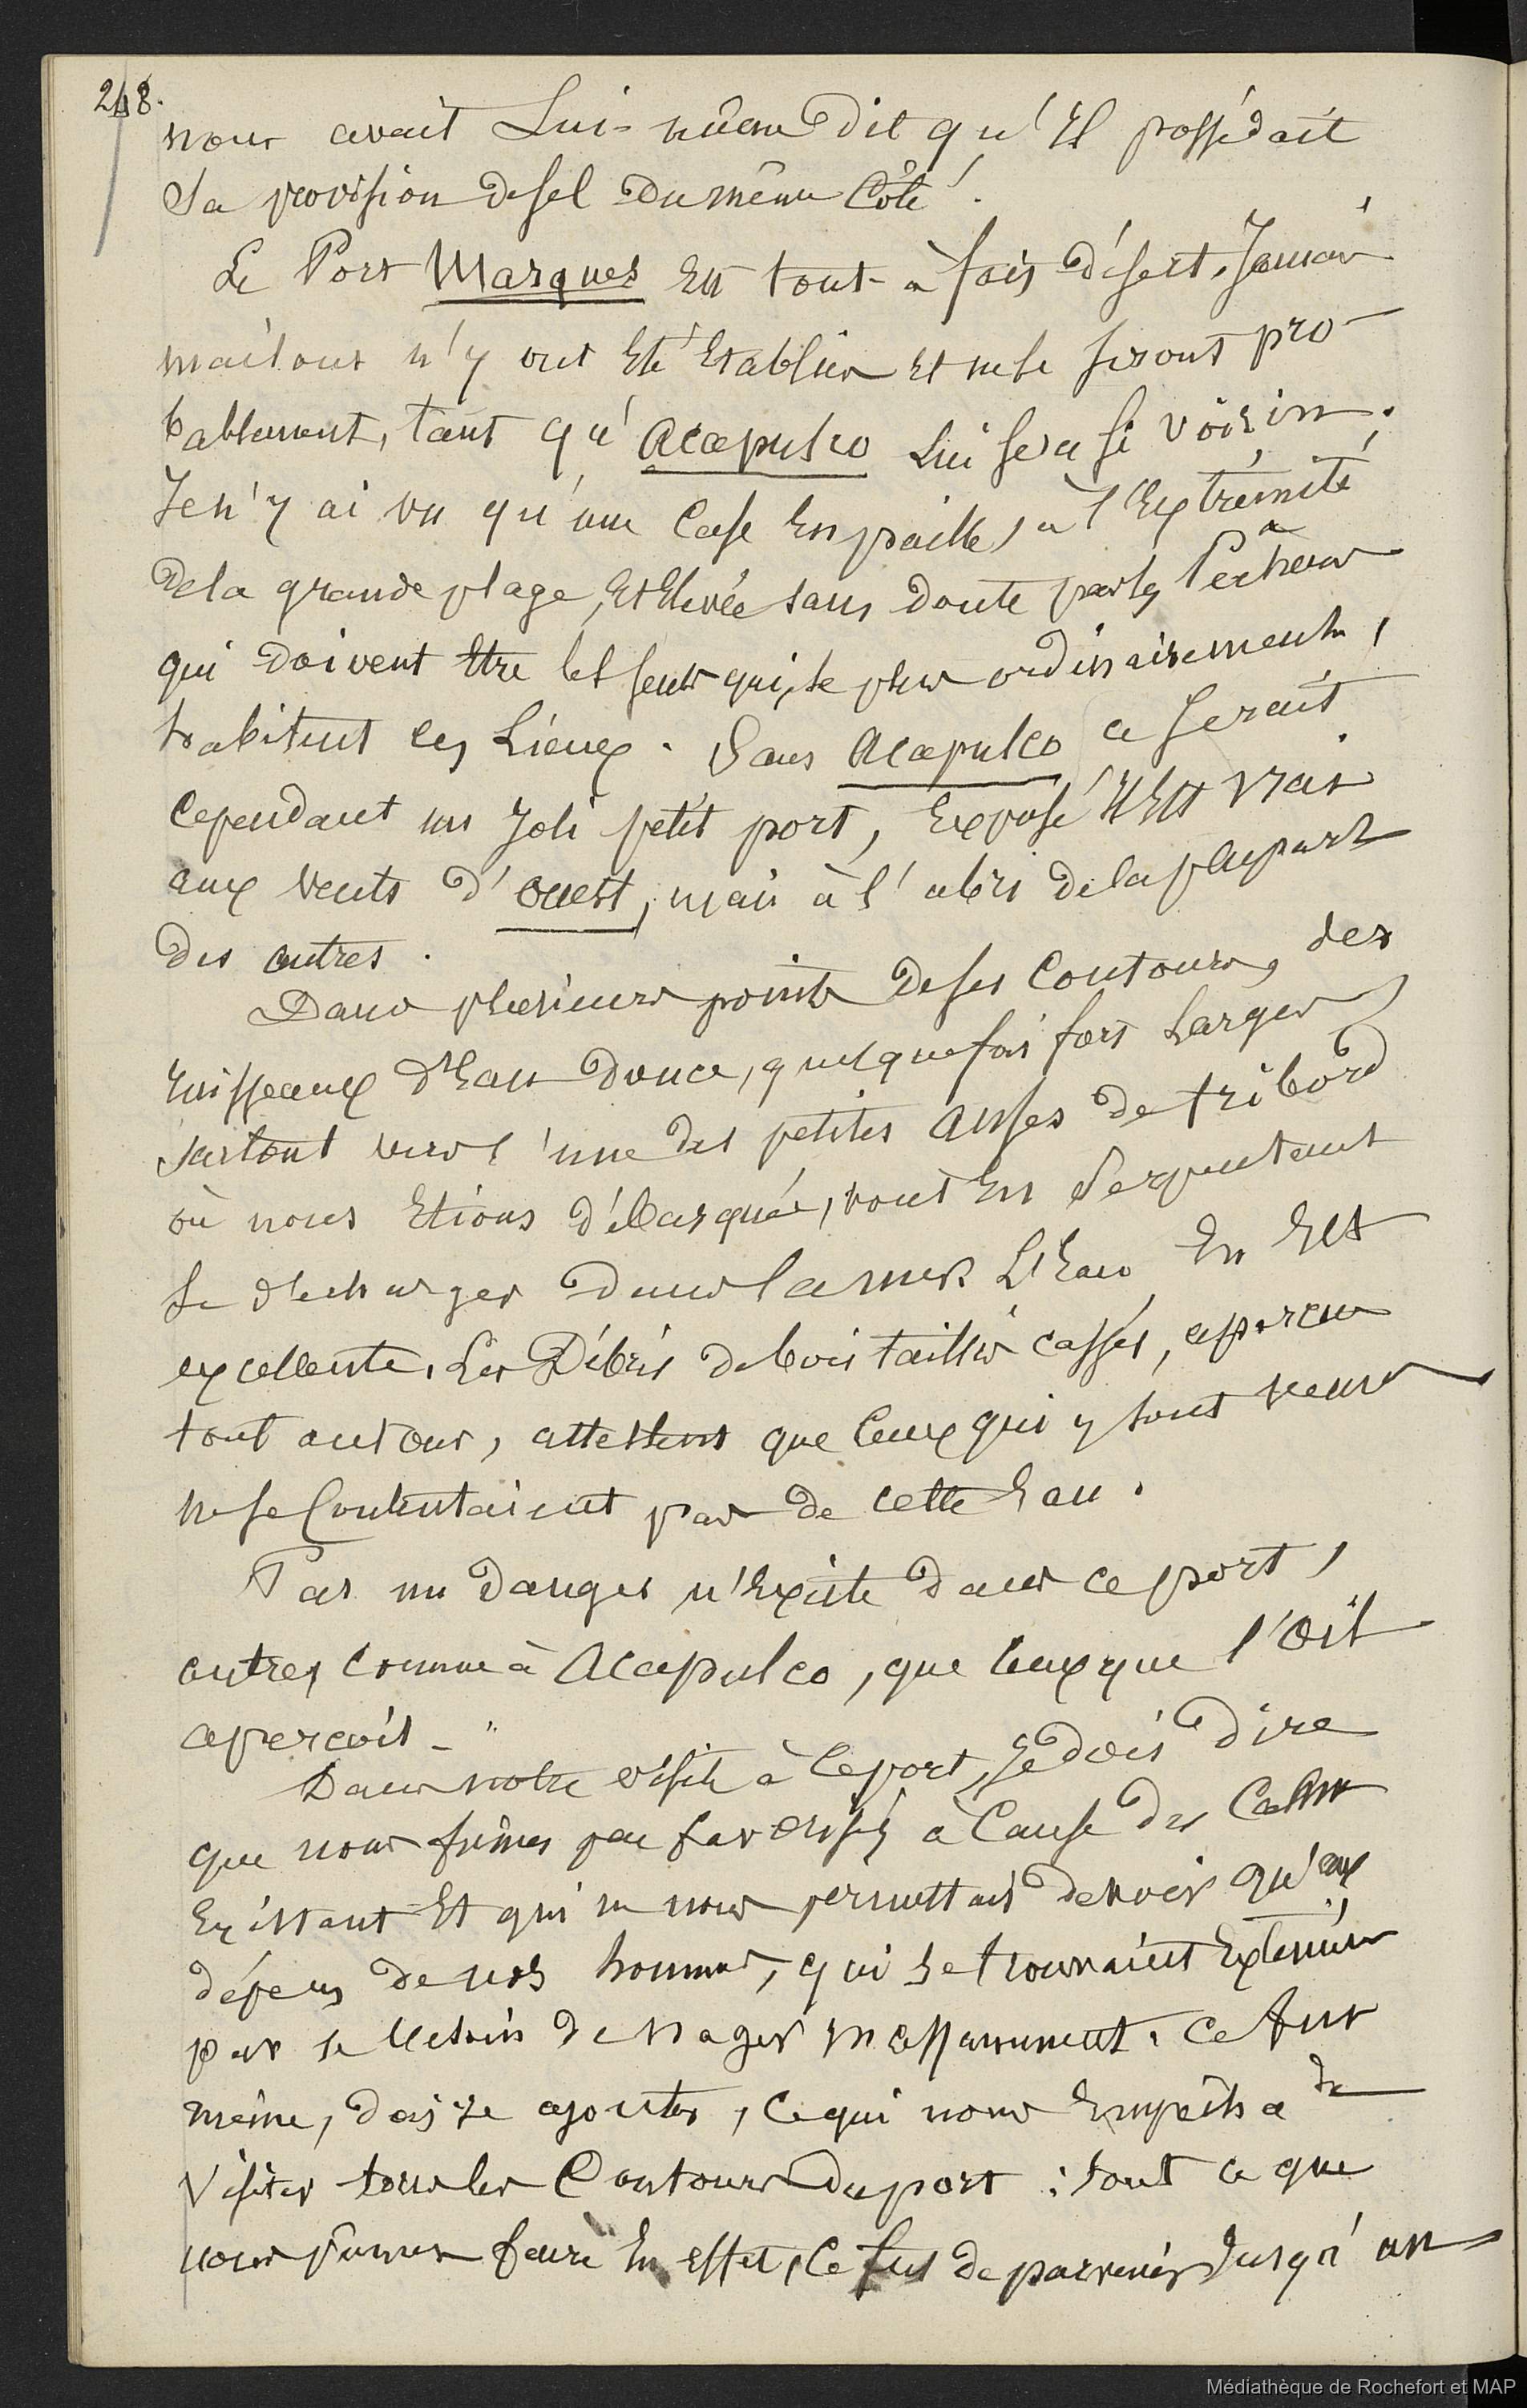 248.
nous avait Lui-même dit qu'Il possédait
Sa provision de sel Du même Côté.
Le Port Marques Est tout-à fait désert. Jamais
maisons n'y ont Eté Etablies Et ne le seront pro-
bablement, tant qu'Acapulco Lui sera si voisin.
Je n'y ai vu qu'une Case En paille, à l'Extrémité
De la grande plage, Et Elevée sans doute par les Pêcheurs
qui doivent Etre les seuls qui, le plus ordinairement,
habitent ces Lieux. Sans Acapulco ce serait
Cependant un Joli petit port, Exposé Il Est vrai
aux vents d'ouest, mais à l'abri de la plupart
des autres.
Dans plusieurs points De ses Contours, des
ruisseaux d'Eau Douce, quelquefois fort Larges
surtout vers l'une des petites anses de tribord
où nous Etions débarqués, vont En Serpentant
Se décharger Dans la mer. L'Eau En Est
excellente. Les Débris de bois taillés cassés, aperçus
tout autour, attestent que Ceux qui y sont venus
ne se Contentaient pas de cette Eau.
Pas un Danger n'Existe dans ce port,
autres comme à Acapulco, que Ceux que l'Œil
aperçoit.
Dans notre visite à Ce port, Je dois dire
que nous fûmes peu favorisés à Cause des Calmes
Existant Et qui ne nous permettait de voir qu'aux
dépens de nos hommes, qui se trouvaient Exténués
par le besoin de nager incessamment. Ce fut
même, dois-je ajouter, Ce qui nous Empêcha de
Visiter tous les Contours du port : tout ce que
nous pûmes faire En effet, Ce fut de parvenir Jusqu'au
Médiathèque de Rochefort et MAP